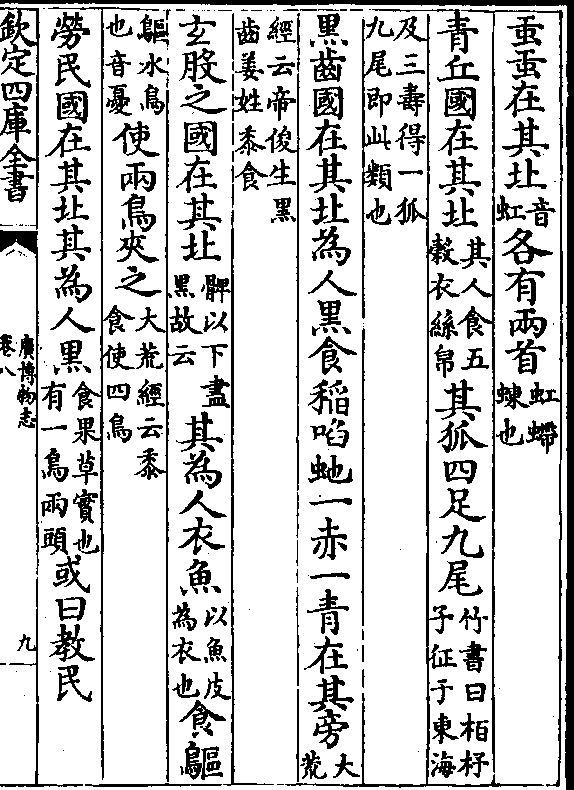 𧈫𧈫在其北音虹各有兩首虹螮蝀也
青丘國在其北其人食五榖衣絲帛其狐四足九尾竹書曰柏杼子征于東海
及三壽得一狐九尾即此類也
黑齒國在其北為人黑食稻啗虵一赤一青在其旁大荒
經云帝俊生黑齒姜姓黍食
玄股之國在其北髀以下盡黑故云其為人衣魚以魚皮為衣也食鷗
鷗水鳥也音憂使兩鳥夾之大荒經云黍食使四鳥
勞民國在其北其為人黑食果草實也有一鳥兩頭或曰教民
欽定四庫全書
廣博物志
卷八
九